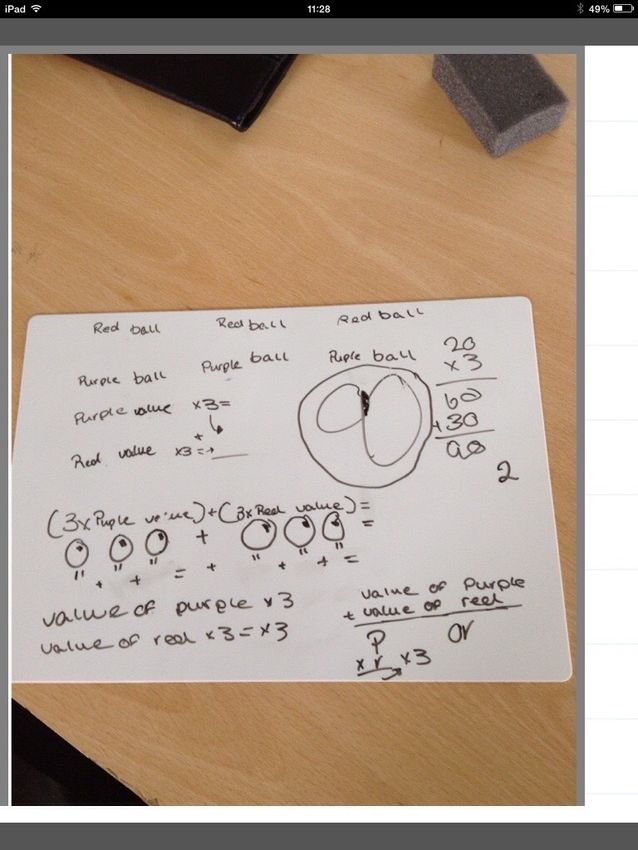 iPad 11:28 49%
Red ball Red ball Red ball
Purple ball Purple ball Puple ball
Purple value x3=
+
Red value x3=
20
x3
60
+30
90
2
(3x Puple value)+(3x Red value)=
+ =
" " " " " "
+ + = + + + =
value of purple x3
value of red x3=x3
value of Purple
+ value of red
P or
x r x3